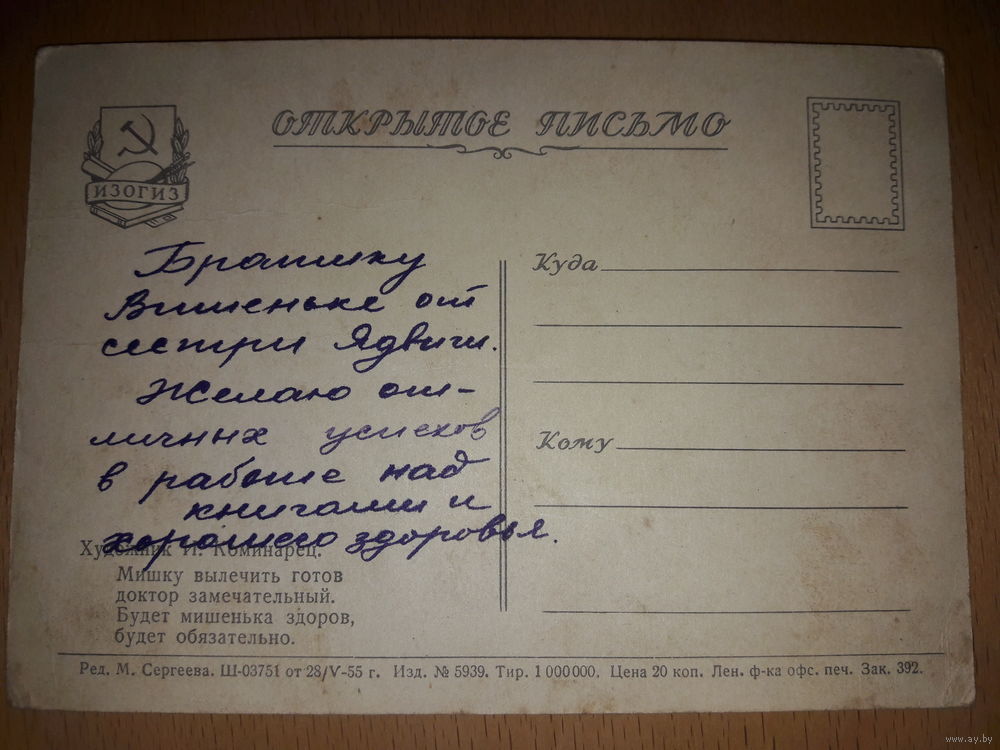 ОТКРЫТОЕ ПИСЬМО
ИЗОГИЗ
Братику
Витеньке от
сестри Ядвиги.
Желаю от-
личных успехов
в работе над
книгами и
хорошего здоровья.
Куда
Кому
Художник И. Коминарец.
Мишку вылечить готов
доктор замечательный.
Будет мишенька здоров,
будет обязательно.
Ред. М. Сергеева. Ш-03751 от 28/V-55 г. Изд. № 5939. Тир. 1 000 000. Цена 20 коп. Лен. ф-ка офс. печ. Зак. 392.
www.ay.by